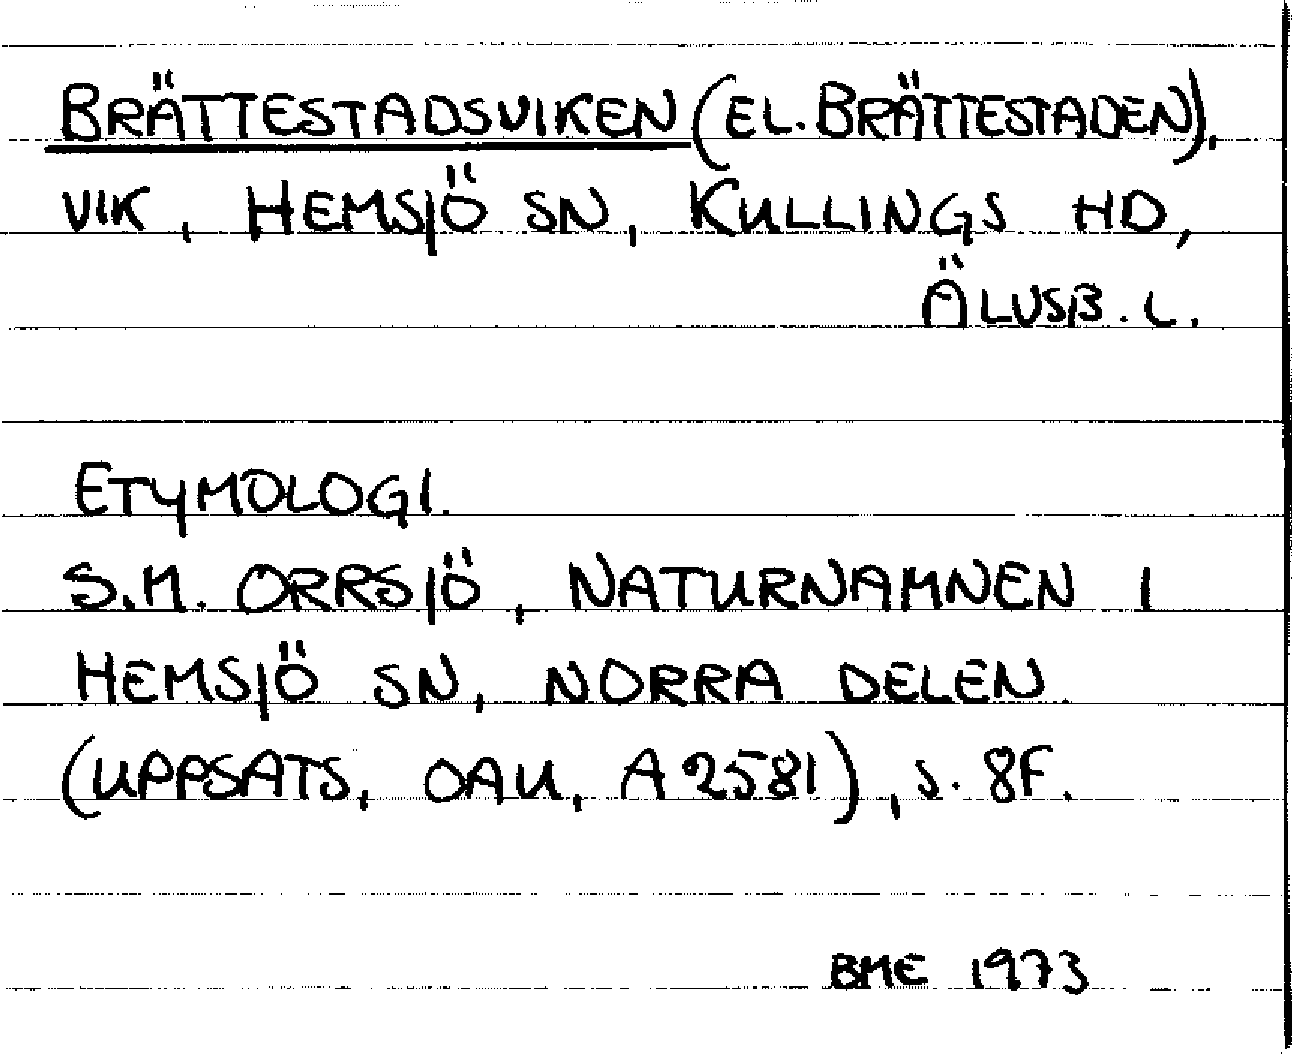 BRÄTTESTADSVIKEN (EL. BRÄTTESTADEN),
VIK, HEMSJÖ SN, KULLINGS HD,
ÄLVSB. L.
ETYMOLOGI.
S.M. ORRSJÖ, NATURNAMNEN I
HEMSJÖ SN, NORRA DELEN
(UPPSATS, OAU, A 2581), S. 8F.
BME 1973